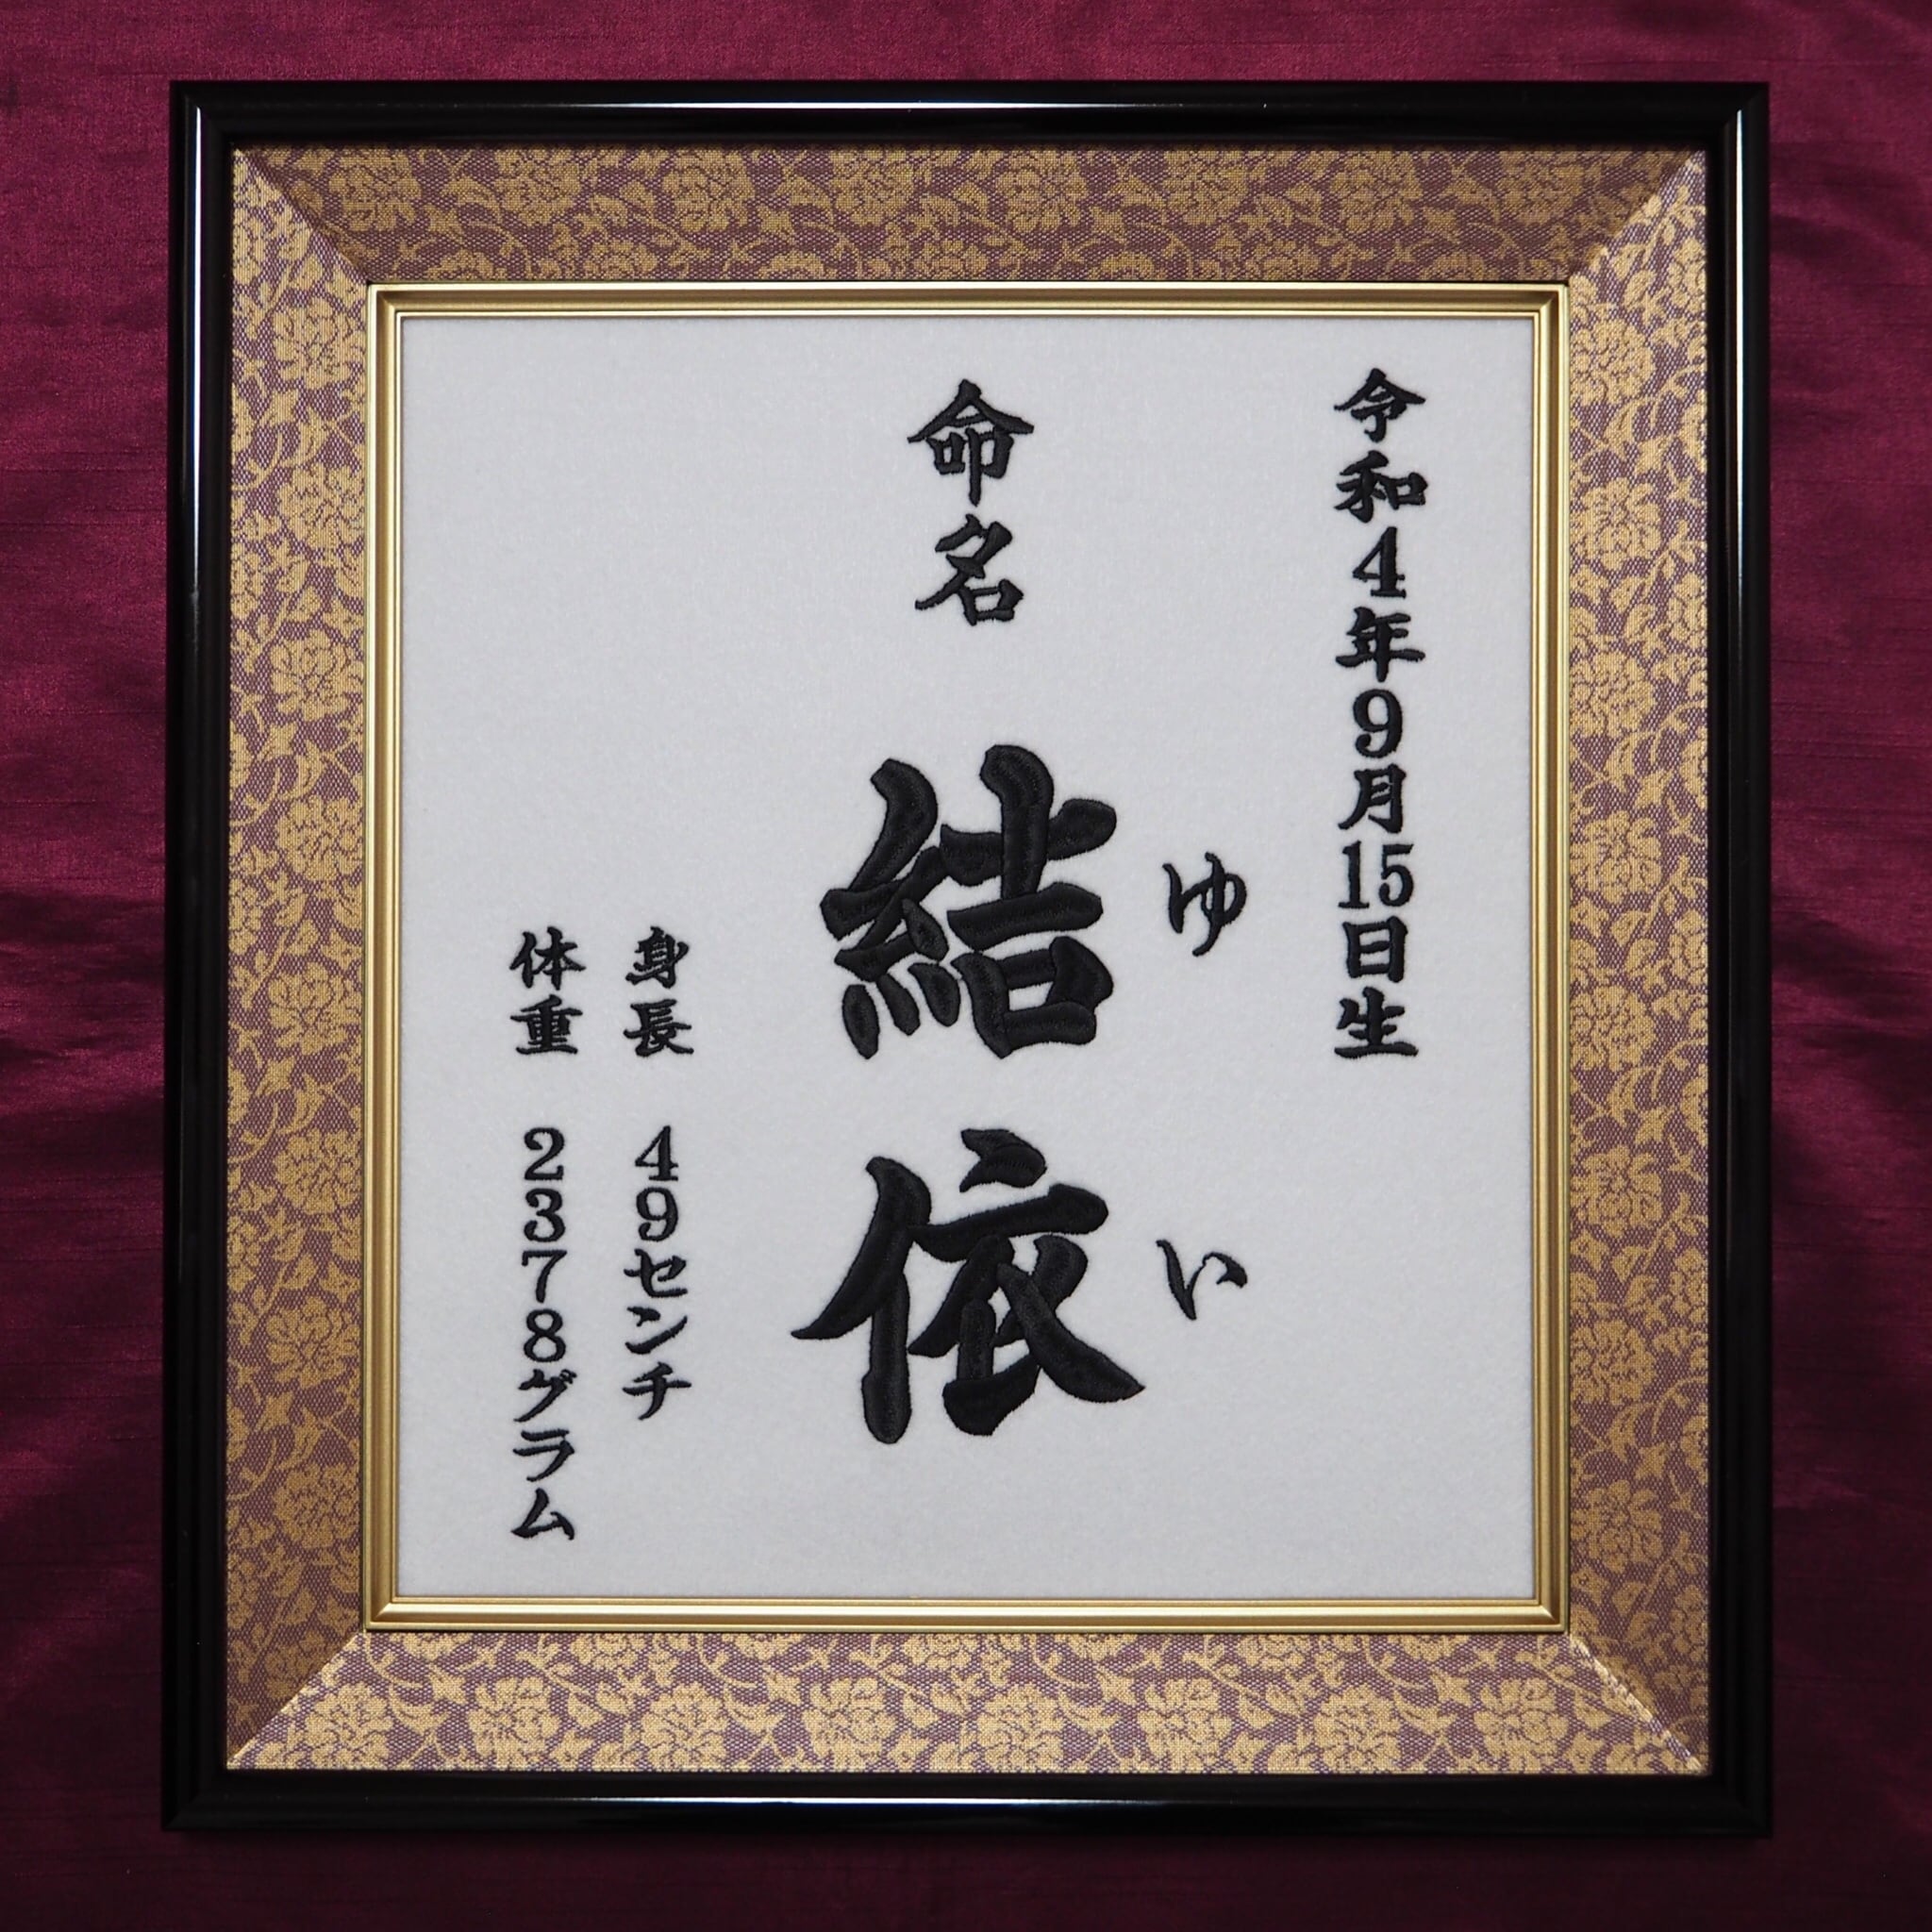 令和4年9月15日生
命名 結依
ゆい
身長 49センチ
体重 2378グラム